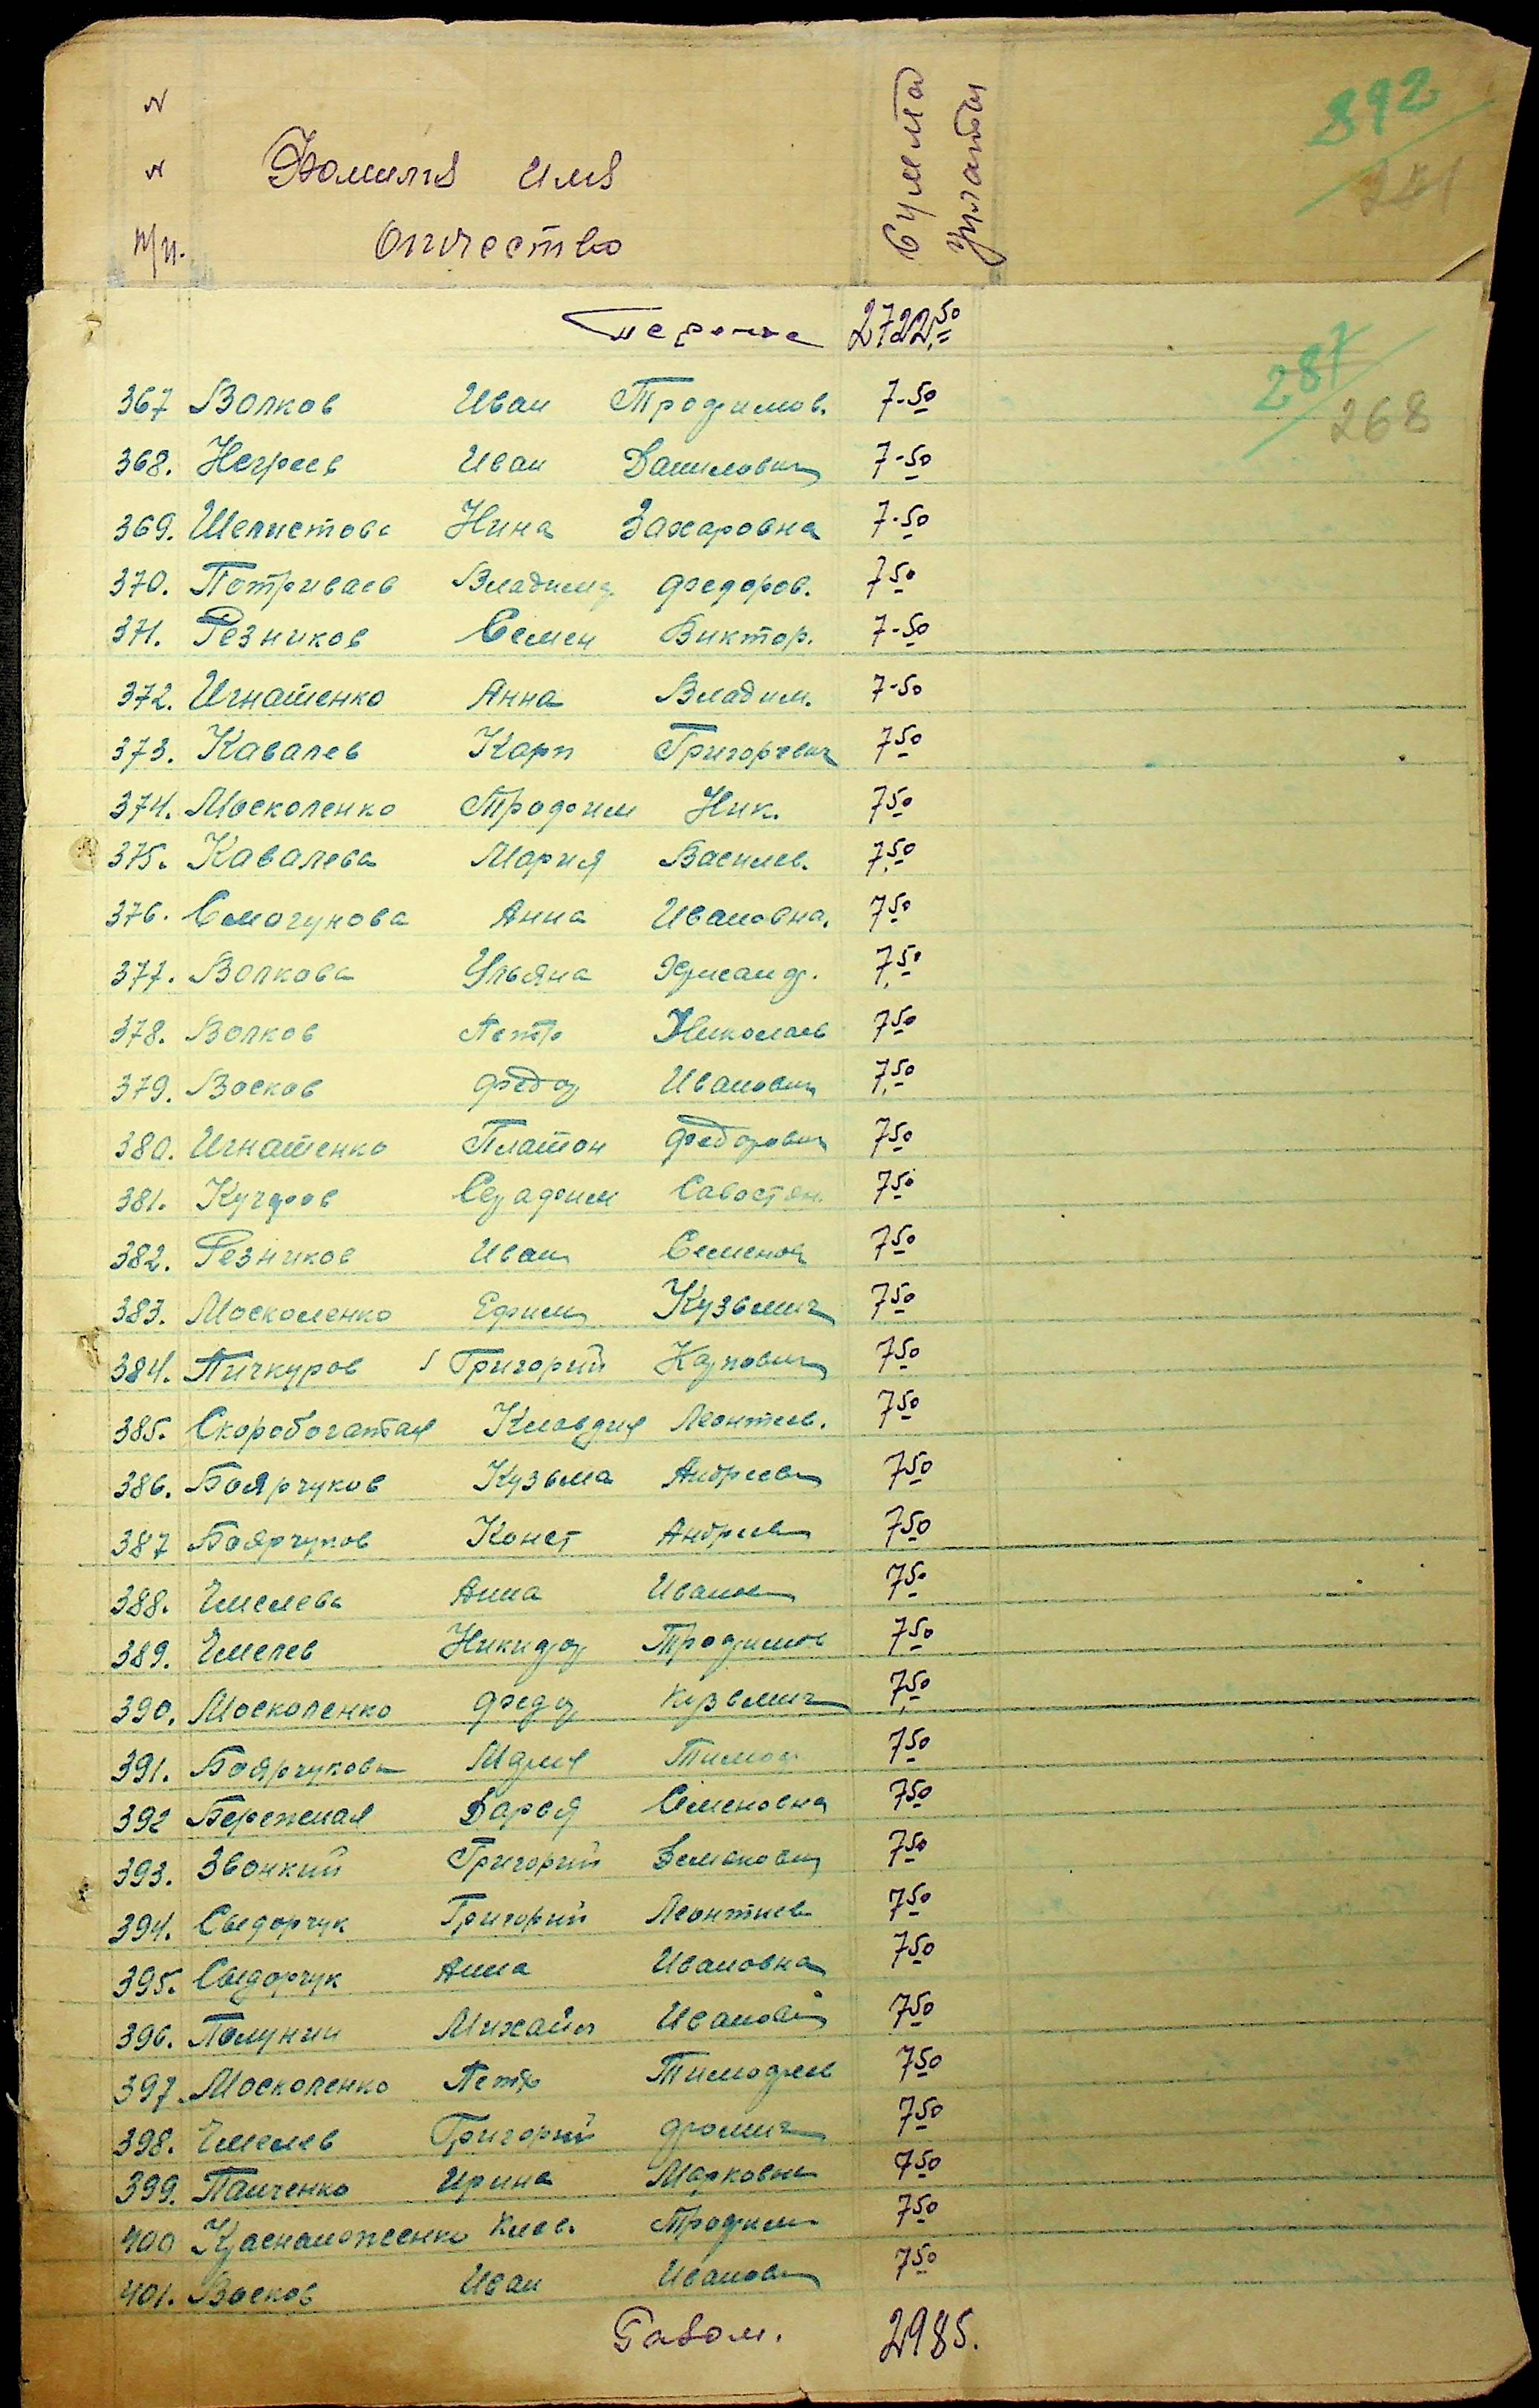 N
N
п/п.
Фамилия имя
отчество
Сумма
уплаты
892
271
2722,50
287
268
367 Волков Иван Трофимов. 7-50
368. Негреев Иван Данилович 7-50
369. Шелистова Нина Захаровна 7-50
370. Потриваев Владимир Федоров. 7 50
371. Резников Семен Виктор. 7-50
372. Игнатенко Анна Владим. 7-50
373. Кавалев Карп Григорьевич 7 50
374. Москаленко Трофим Ник. 7 50
375. Кавалева Мария Василев. 7,50
376. Смогунова Анна Ивановна. 7 50
377. Волкова Ульяна 7,50
378. Волков Петр Николаев 7 50
379. Восков Федор Иванович 7,50
380. Игнатенко Платон Федорович 7 50
381. Кучуров Серафим Савостян. 7 50
382. Резников Иван Семенов 7 50
383. Москаленко Ефим Кузьмич 7 50
384. Пичкуров Григорий Карпович 7 50
385. Скоробогатая Клавдия Леонтьев. 7 50
386. Боярчуков Кузьма Андреев 7 50
387 Боярчуков Конст Андреев 7 50
388. Емелева Анна Иванов 7 50
389. Емелев Никифор Трофимов 7 50
390. Москаленко Федор Кузьмич 7,50
391. Боярчукова Мария Тимоф. 7 50
392 Бережная Дарья Семеновна 7 50
393. Звонкий Григорий 7 50
394. Сыдорчук Григорий Леонтиев 7 50
395. Сыдорчук Анна Ивановна 7 50
396. Полунин Михайл Иванович 7 50
397. Москаленко Петр Тимофеев 7 50
398. Емелев Григорий Фомич 7 50
399. Панченко Ирина Марковна 7 50
400 Краснаможенко Клав. Трофим 7 50
401. Восков Иван Иванов 7 50
Разом. 2985.